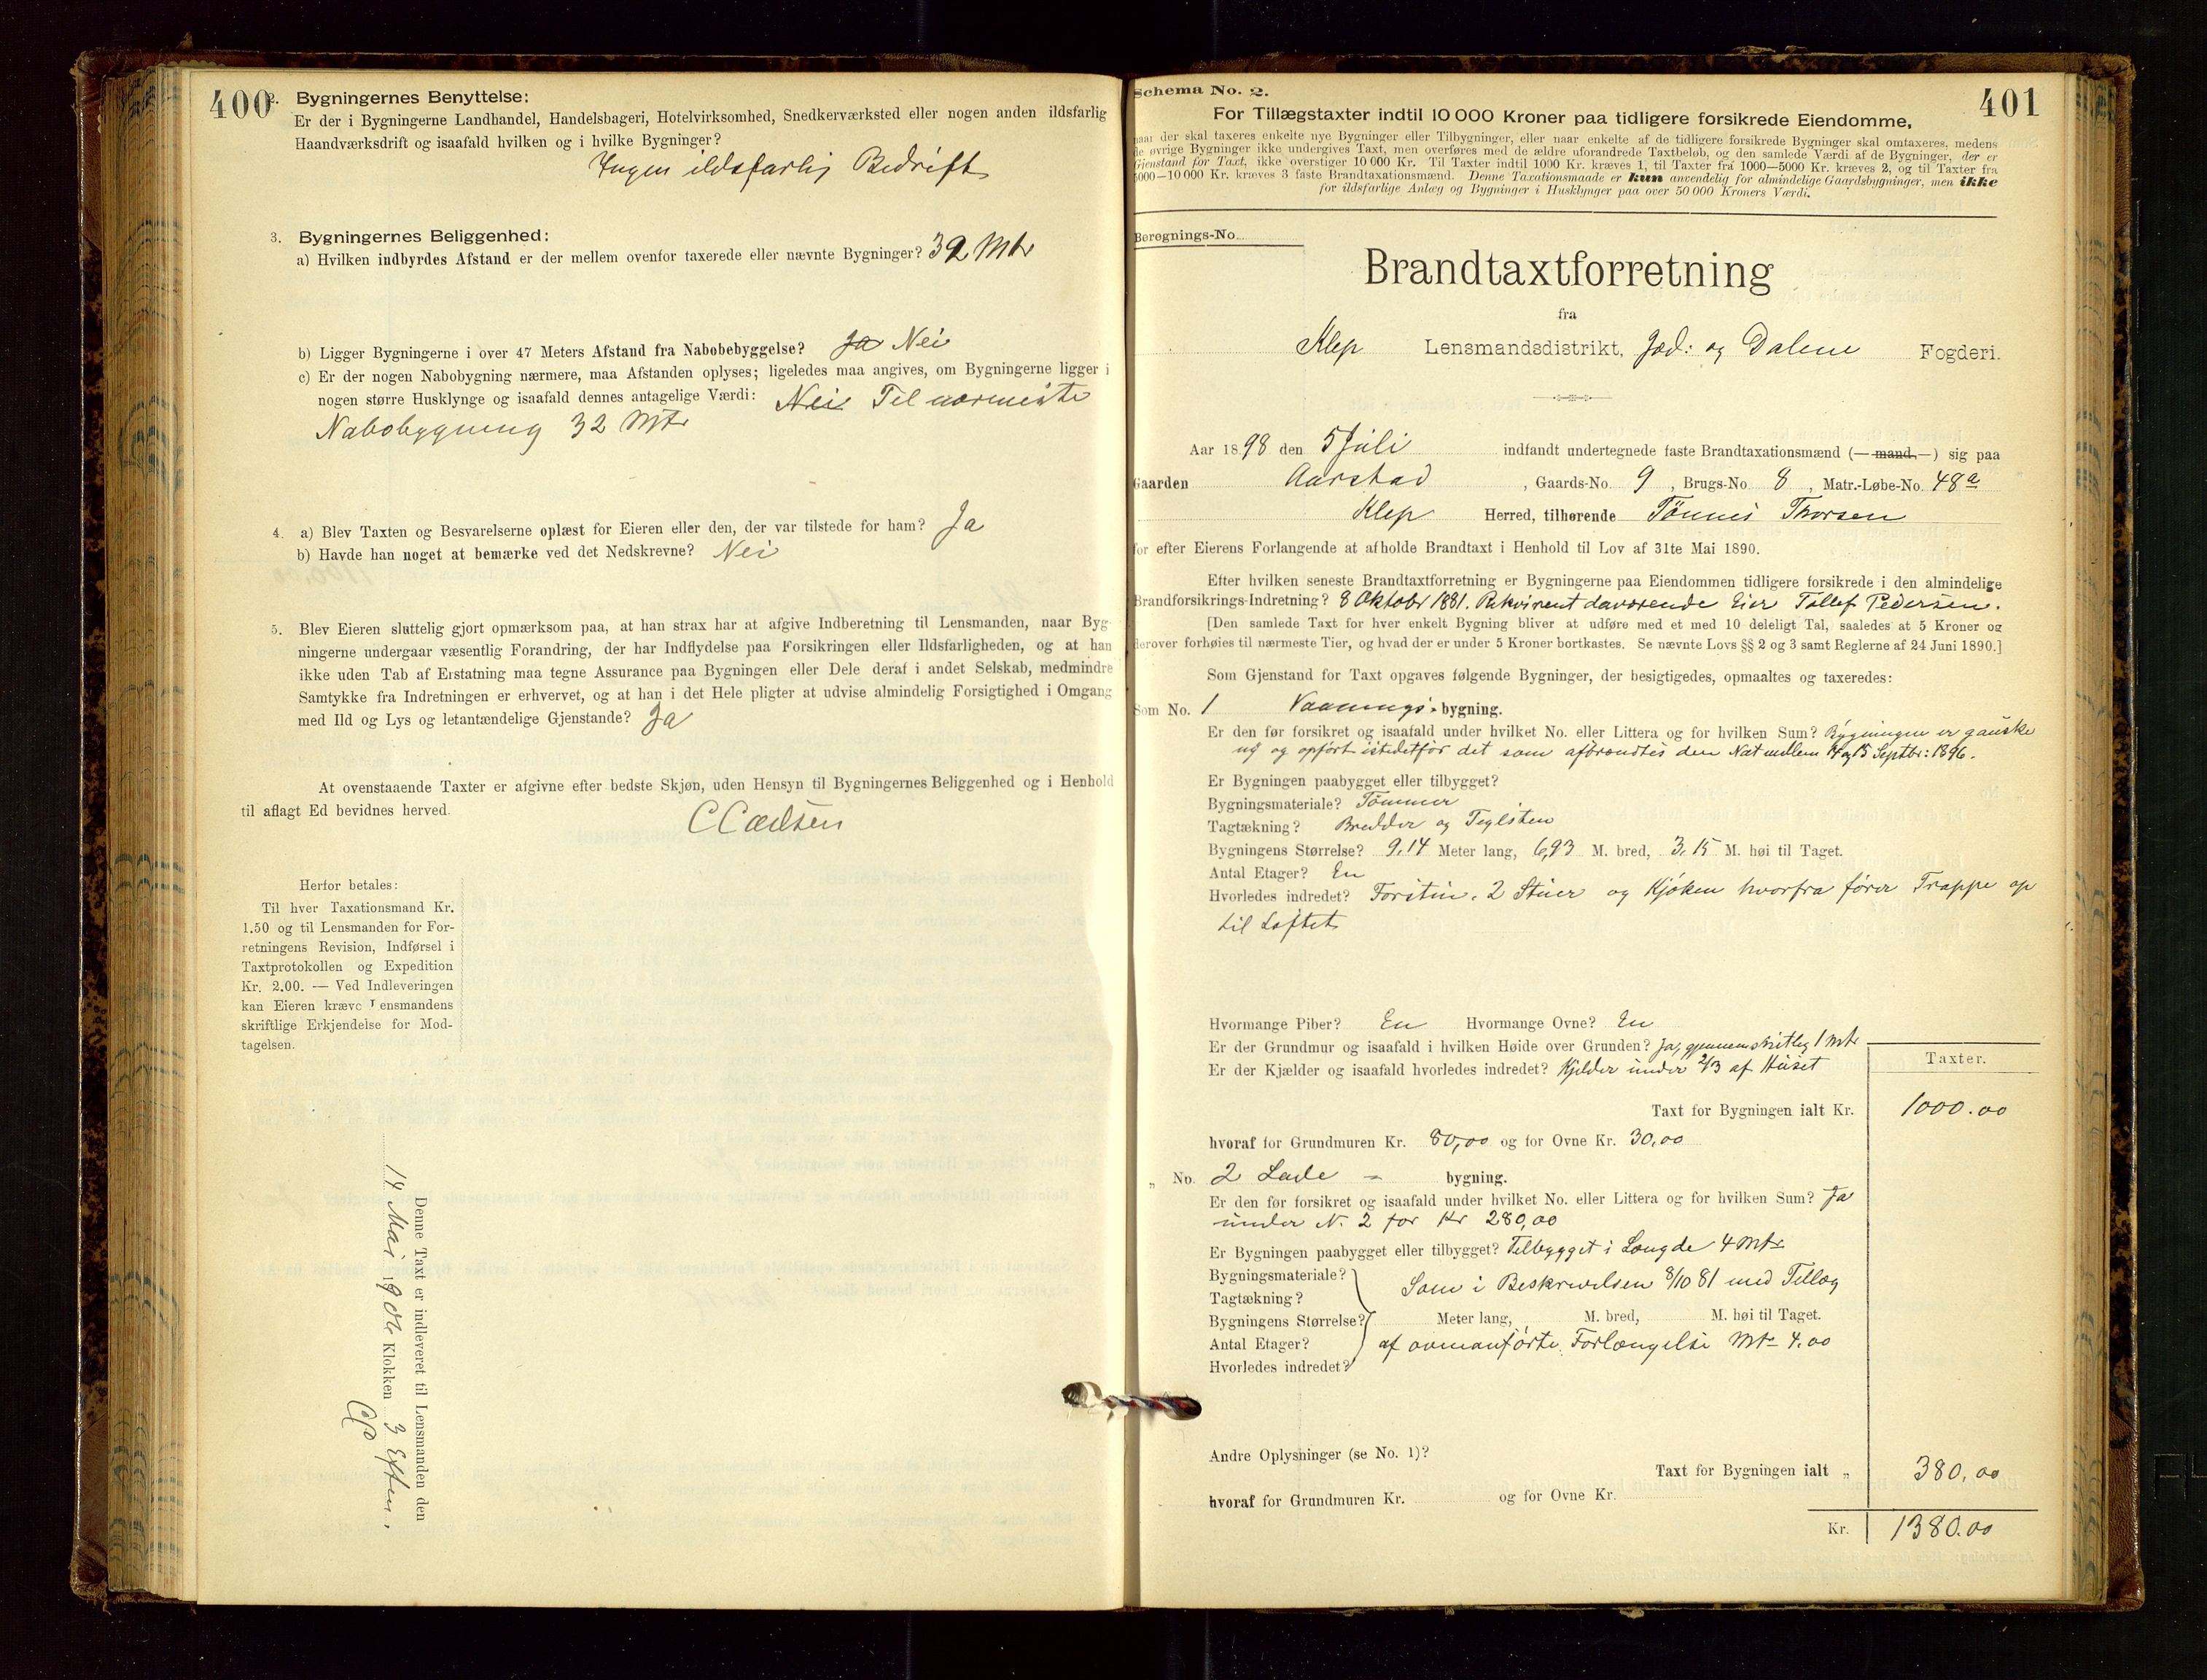 400
2. Bygningernes Benyttelse:
Er der i Bygningerne Landhandel, Handelsbageri, Hotelvirksomhed, Snedkerværksted eller nogen anden ildsfarlig
Haandværksdrift og isaafald hvilken og i hvilke Bygninger?
Ingen ildsfarlig Bedrift
3. Bygningernes Beliggenhed:
a) Hvilken indbyrdes Afstand er der mellem ovenfor taxerede eller nævnte Bygninger? 32 Mtr
b) Ligger Bygningerne i over 47 Meters Afstand fra Nabobebyggelse? Ja Nei
c) Er der nogen Nabobygning nærmere, maa Afstanden oplyses; ligeledes maa angives, om Bygningerne ligger i
nogen større Husklynge og isaafald dennes antagelige Værdi: Nei Til nærmeste
Nabobygning 32 Mtr
4. a) Blev Taxten og Besvarelserne oplæst for Eieren eller den, der var tilstede for ham? Ja
b) Havde han noget at bemærke ved det Nedskrevne? Nei
5. Blev Eieren sluttelig gjort opmærksom paa, at han strax har at afgive Indberetning til Lensmanden, naar Byg-
ningerne undergaar væsentlig Forandring, der har Indflydelse paa Forsikringen eller Ildsfarligheden, og at han
ikke uden Tab af Erstatning maa tegne Assurance paa Bygningen eller Dele deraf i andet Selskab, medmindre
Samtykke fra Indretningen er erhvervet, og at han i det Hele pligter at udvise almindelig Forsigtighed i Omgang
med Ild og Lys og letantændelige Gjenstande? Ja
At ovenstaaende Taxter er afgivne efter bedste Skjøn, uden Hensyn til Bygningernes Beliggenhed og i Henhold
til aflagt Ed bevidnes herved.
Herfor betales:
Til hver Taxationsmand Kr.
1.50 og til Lensmanden for For-
retningens Revision, Indførsel i
Taxtprotokollen og Expedition
Kr. 2.00. — Ved Indleveringen
kan Eieren kræve Lensmandens
skriftlige Erkjendelse for Mod-
tagelsen.
Denne Taxt er indleveret til Lensmanden den
14 Mai 1906 Klokken 3 Efterm.
Schema No. 2.
401
For Tillægstaxter indtil 10 000 Kroner paa tidligere forsikrede Eiendomme,
naar der skal taxeres enkelte nye Bygninger eller Tilbygninger, eller naar enkelte af de tidligere forsikrede Bygninger skal omtaxeres, medens
de øvrige Bygninger ikke undergives Taxt, men overføres med de ældre uforandrede Taxtbeløb, og den samlede Værdi af de Bygninger, der er
Gjenstand for Taxt, ikke overstiger 10 000 Kr. Til Taxter indtil 1000 Kr. kræves 1, til Taxter fra 1000—5000 Kr. kræves 2, og til Taxter fra
5000—10 000 Kr. kræves 3 faste Brandtaxationsmænd. Denne Taxationsmaade er kun anvendelig for almindelige Gaardsbygninger, men ikke
for ildsfarlige Anlæg og Bygninger i Husklynger paa over 50 000 Kroners Værdi.
Beregnings-No.
Brandtaxtforretning
fra
Klep Lensmandsdistrikt, Jæd: og Dalene Fogderi.
Aar 1898 den 5 Juli indfandt undertegnede faste Brandtaxationsmænd (—mand.—) sig paa
Gaarden Aarstad, Gaards-No. 9, Brugs-No. 8, Matr.-Løbe-No. 48a
Klep Herred, tilhørende Tönnes Thorsen
for efter Eierens Forlangende at afholde Brandtaxt i Henhold til Lov af 31te Mai 1890.
Efter hvilken seneste Brandtaxtforretning er Bygningerne paa Eiendommen tidligere forsikrede i den almindelige
Brandforsikrings-Indretning? 8 Oktobr 1881. Rekvirent daværende Eier Tollef Pedersen.
[Den samlede Taxt for hver enkelt Bygning bliver at udføre med et med 10 deleligt Tal, saaledes at 5 Kroner og
derover forhøies til nærmeste Tier, og hvad der er under 5 Kroner bortkastes. Se nævnte Lovs §§ 2 og 3 samt Reglerne af 24 Juni 1890.]
Som Gjenstand for Taxt opgaves følgende Bygninger, der besigtigedes, opmaaltes og taxeredes:
Som No. 1 Vaanings-bygning.
Er den før forsikret og isaafald under hvilket No. eller Littera og for hvilken Sum? Bygningen er ganske
ny og opført istedetfor det som afbrændtes den Nat mellem 14 og 15 Septbr: 1896.
Er Bygningen paabygget eller tilbygget?
Bygningsmateriale? Tömmer
Tagtækning? Bredder og Teglsten
Bygningens Størrelse? 9,14 Meter lang, 6,93 M. bred, 3,15 M. høi til Taget.
Antal Etager? En
Hvorledes indredet? Forstue, 2 Stuer og Kjöken hvorfra förer Trappe op
til Loftet
Hvormange Piber? En Hvormange Ovne? En
Er der Grundmur og isaafald i hvilken Høide over Grunden? Ja, gjennemsnitlig 1 Mtr
Er der Kjælder og isaafald hvorledes indredet? Kjelder under 2/3 af Huset
Taxter.
Taxt for Bygningen ialt Kr. 1000.00
hvoraf for Grundmuren Kr. 80,00 og for Ovne Kr. 30,00
„ No. 2 Lade - bygning.
Er den før forsikret og isaafald under hvilket No. eller Littera og for hvilken Sum? Ja
under N. 2 for Kr 280,00
Er Bygningen paabygget eller tilbygget? Tilbygget i Længde 4 Mtr
Bygningsmateriale?
Som i Beskrivelsen 8/10 81 med Tillæg
Tagtækning?
Bygningens Størrelse? Meter lang, M. bred, M. høi til Taget.
Antal Etager? af ovenanförte Forlængelse Mtr 4.00
Hvorledes indredet?
Andre Oplysninger (se No. 1)?
Taxt for Bygningen ialt „ 380,00
hvoraf for Grundmuren Kr. og for Ovne Kr.
Kr. 1380.00